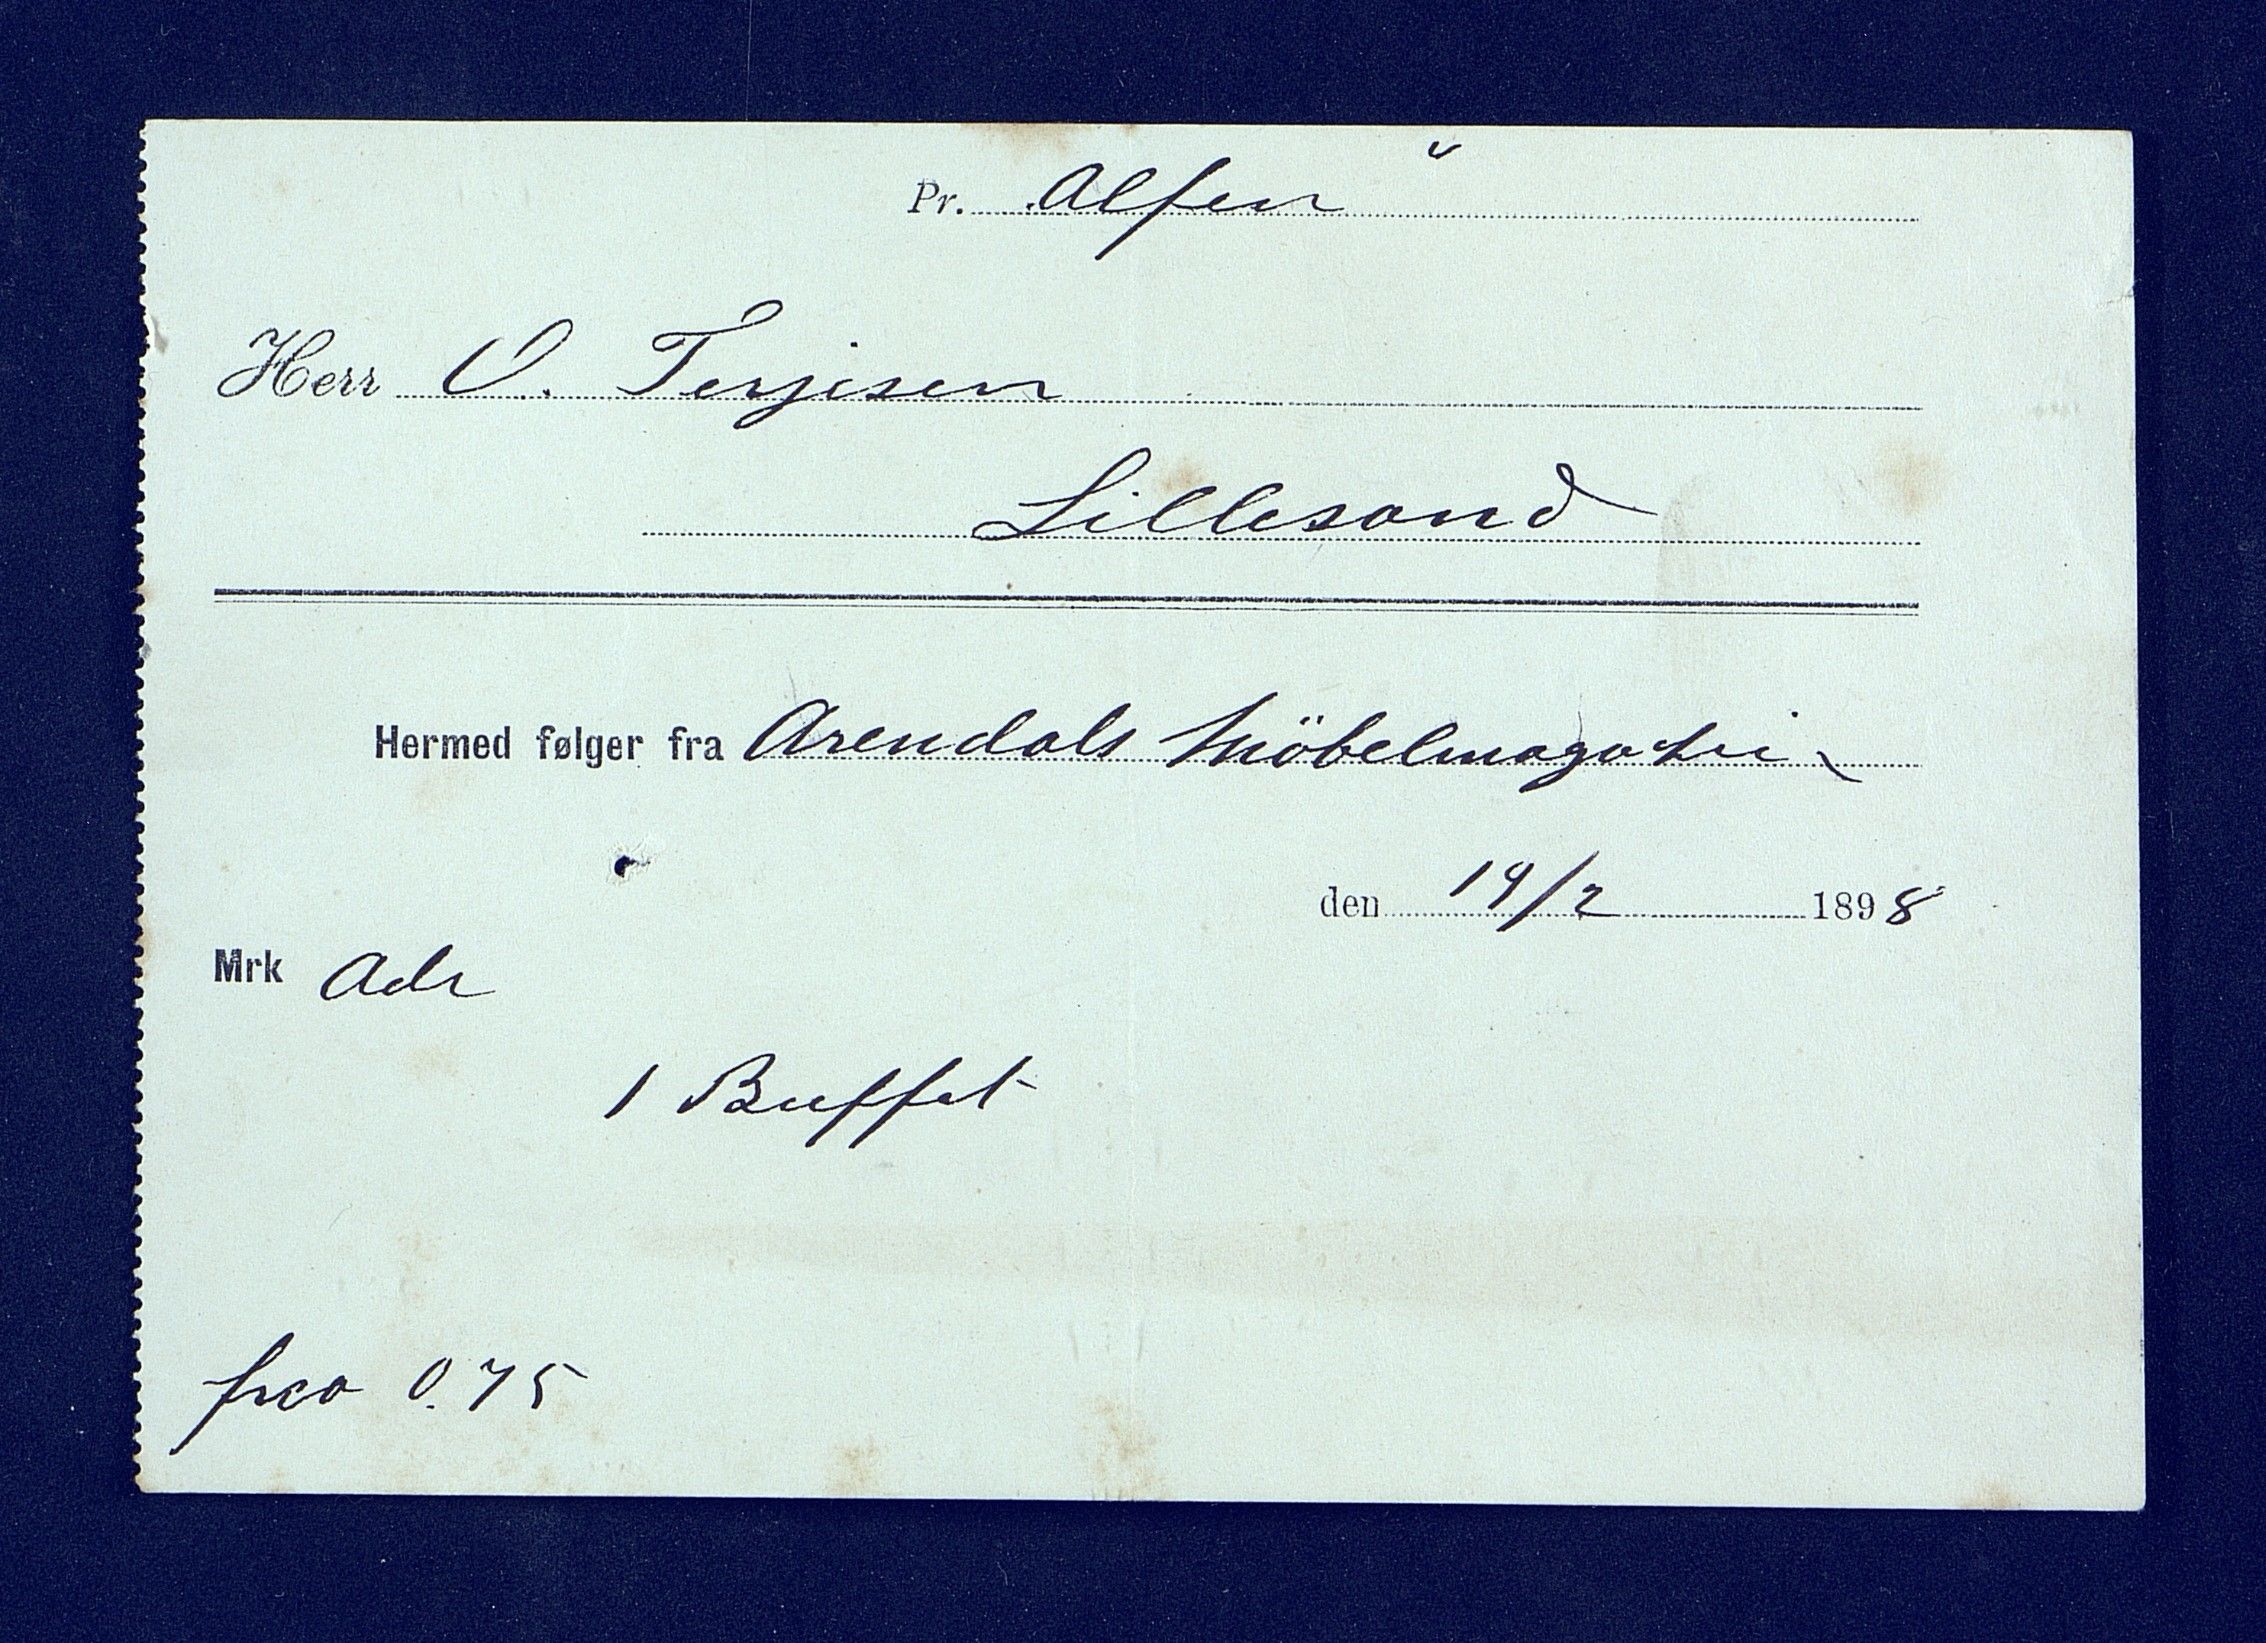 Pr. „Alfen“
Herr O. Terjesen
Lillesand
Hermed følger fra Arendals Möbelmagasin
den 19/2 1898
Mrk Adr
1 Buffet
frco 0.75